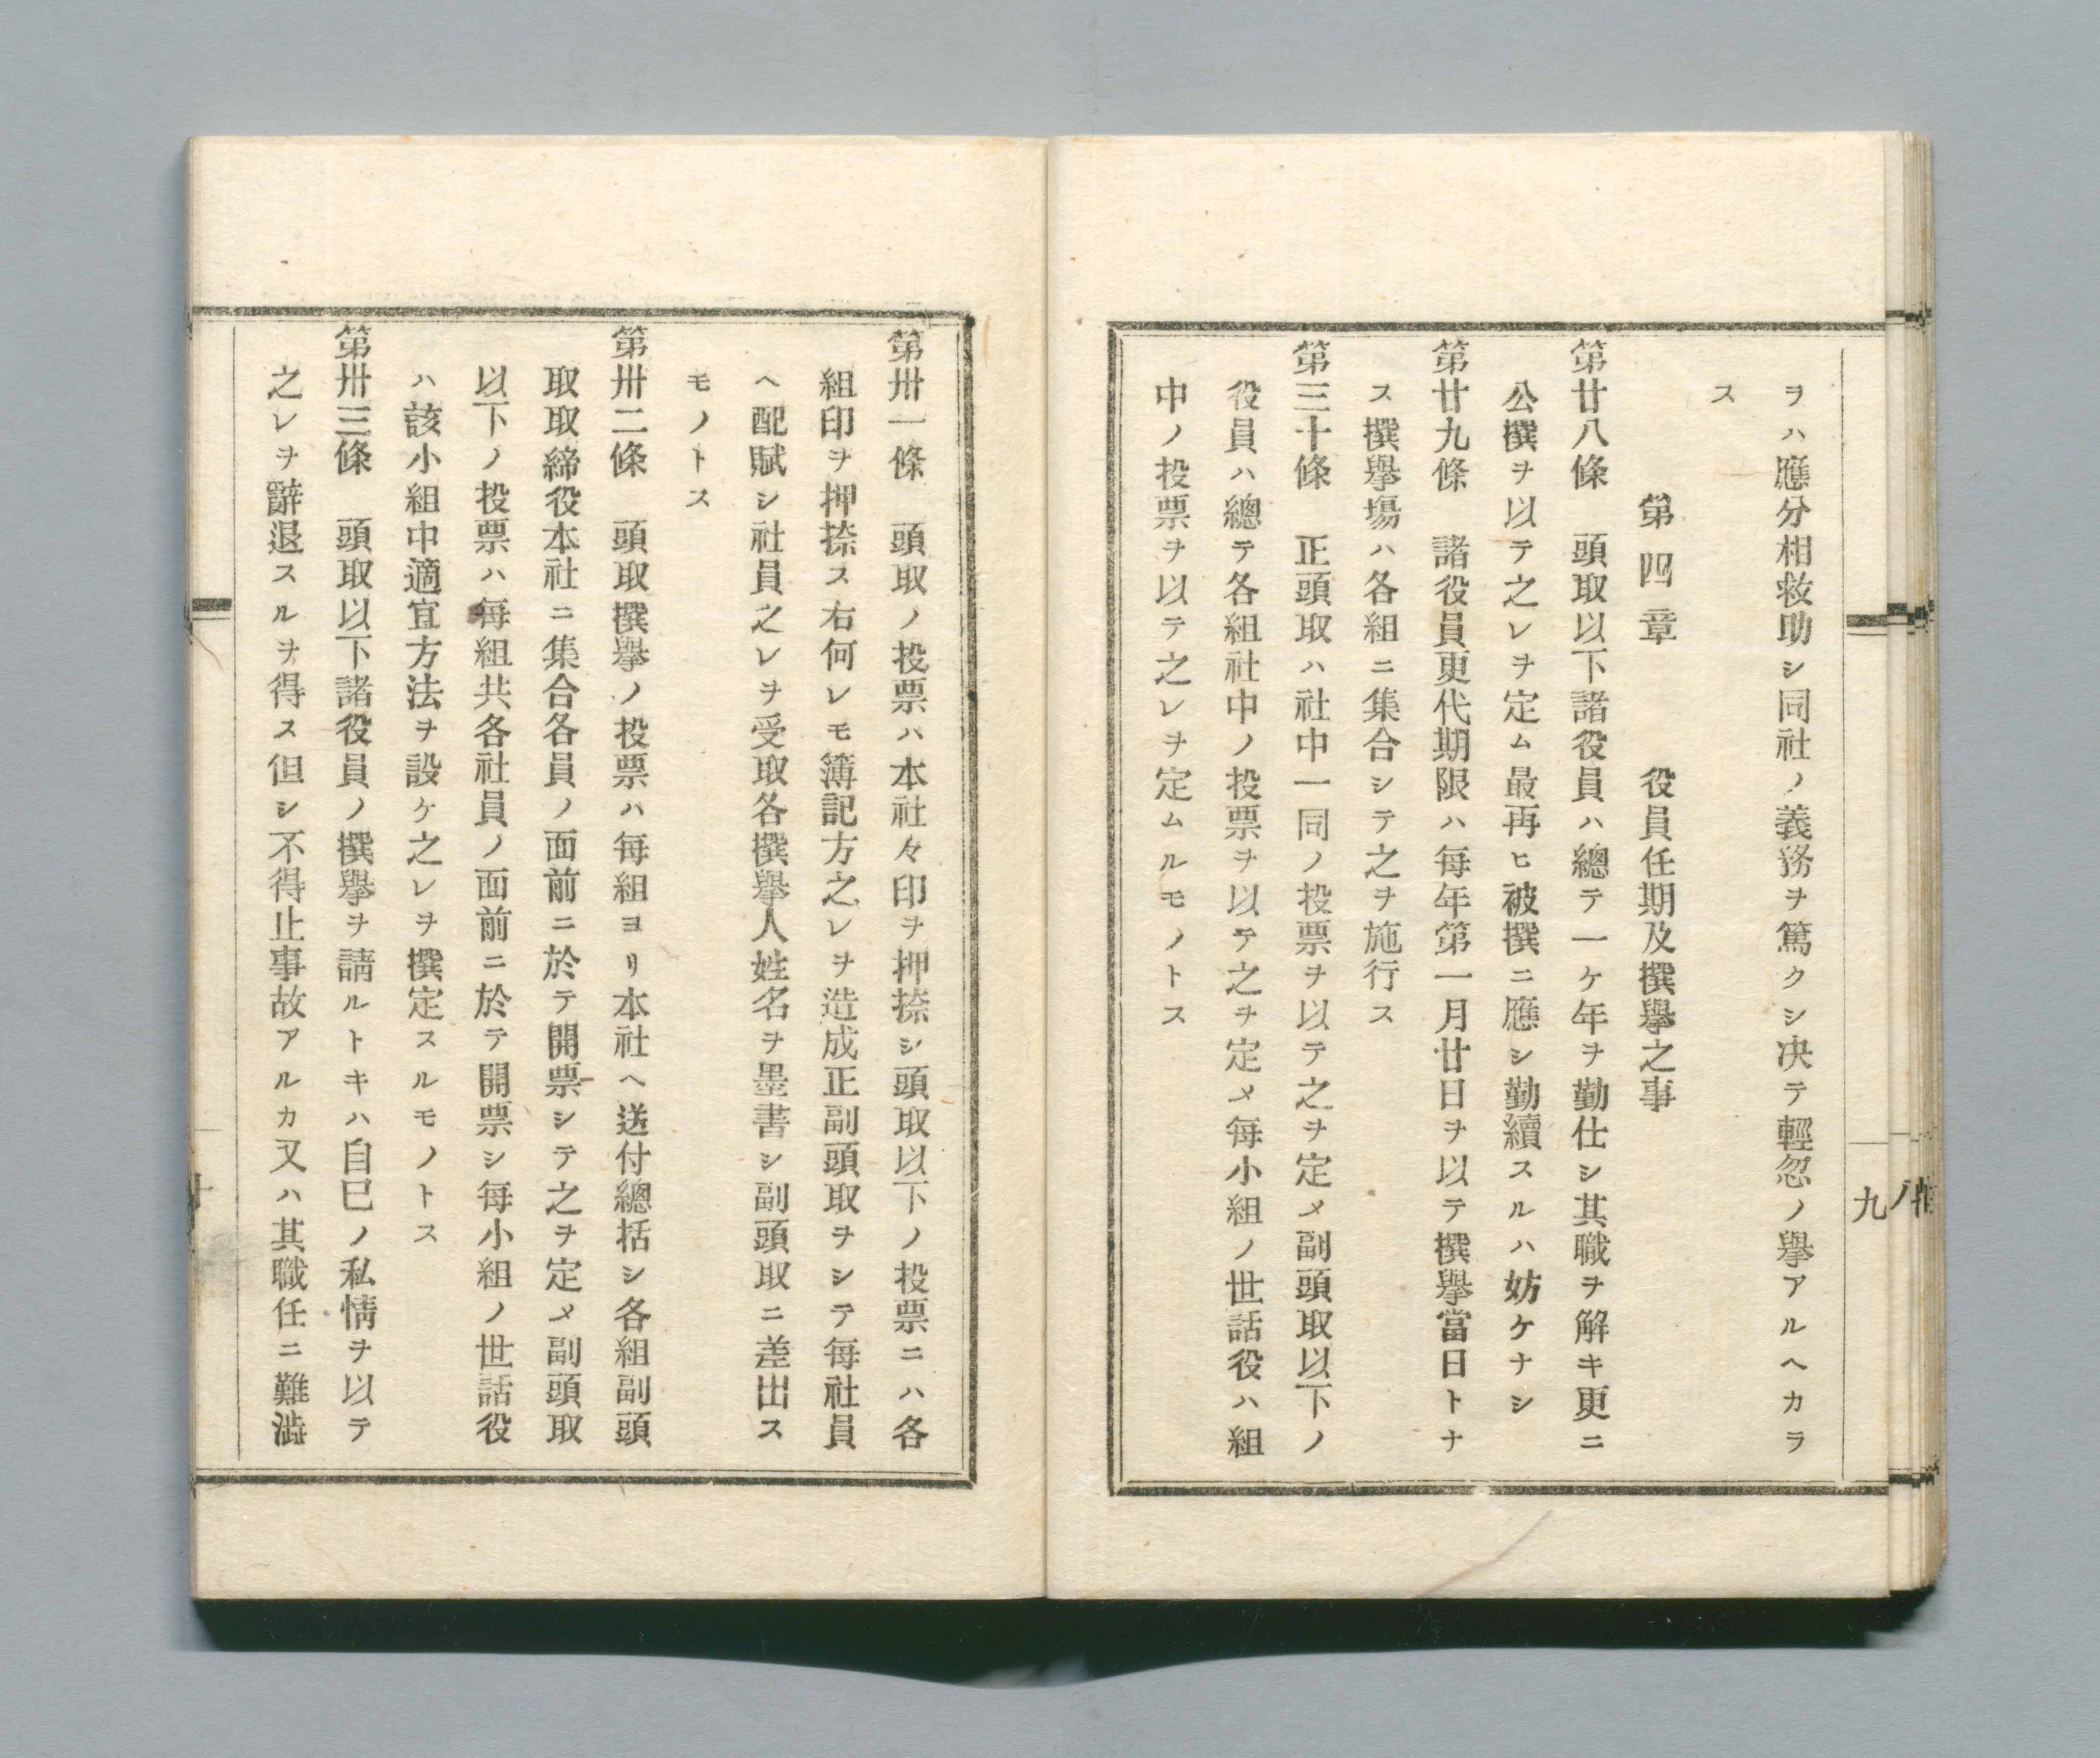 ヲハ應分相救助シ同社ノ義務ヲ篤クシ决テ輕忽ノ擧アルヘカラ
ス
第四章　役員任期及撰擧之事
第廿八條　頭取以下諸役員ハ總テ一ケ年ヲ勤仕シ其職ヲ解キ更ニ
公撰ヲ以テ之レヲ定ム最再ヒ被撰ニ應シ勤續スルハ妨ケナシ
第廿九條　諸役員更代期限ハ每年第一月廿日ヲ以テ撰擧當日トナ
ス撰擧塲ハ各組ニ集合シテ之ヲ施行ス
第三十條　正頭取ハ社中一同ノ投票ヲ以テ之ヲ定メ副頭取以下ノ
役員ハ總テ各組社中ノ投票ヲ以テ之ヲ定メ每小組ノ世話役ハ組
中ノ投票ヲ以テ之レヲ定ムルモノトス
九
第卅一條　頭取ノ投票ハ本社々印ヲ押捺シ頭取以下ノ投票ニハ各
組印ヲ押捺ス右何レモ簿記方之レヲ造成正副頭取ヲシテ每社員
ヘ配賦シ社員之レヲ受取各撰擧人姓名ヲ墨書シ副頭取ニ差出ス
モノトス
第卅二條　頭取撰擧ノ投票ハ每組ヨリ本社ヘ送付總括シ各組副頭
取取締役本社ニ集合各員ノ面前ニ於テ開票シテ之ヲ定メ副頭取
以下ノ投票ハ每組共各社員ノ面前ニ於テ開票シ每小組ノ世話役
ハ該小組中適宜方法ヲ設ケ之レヲ撰定スルモノトス
第卅三條　頭取以下諸役員ノ撰擧ヲ請ルトキハ自已ノ私情ヲ以テ
之レヲ辭退スルヲ得ス但シ不得止事故アルカ又ハ其職任ニ難澁